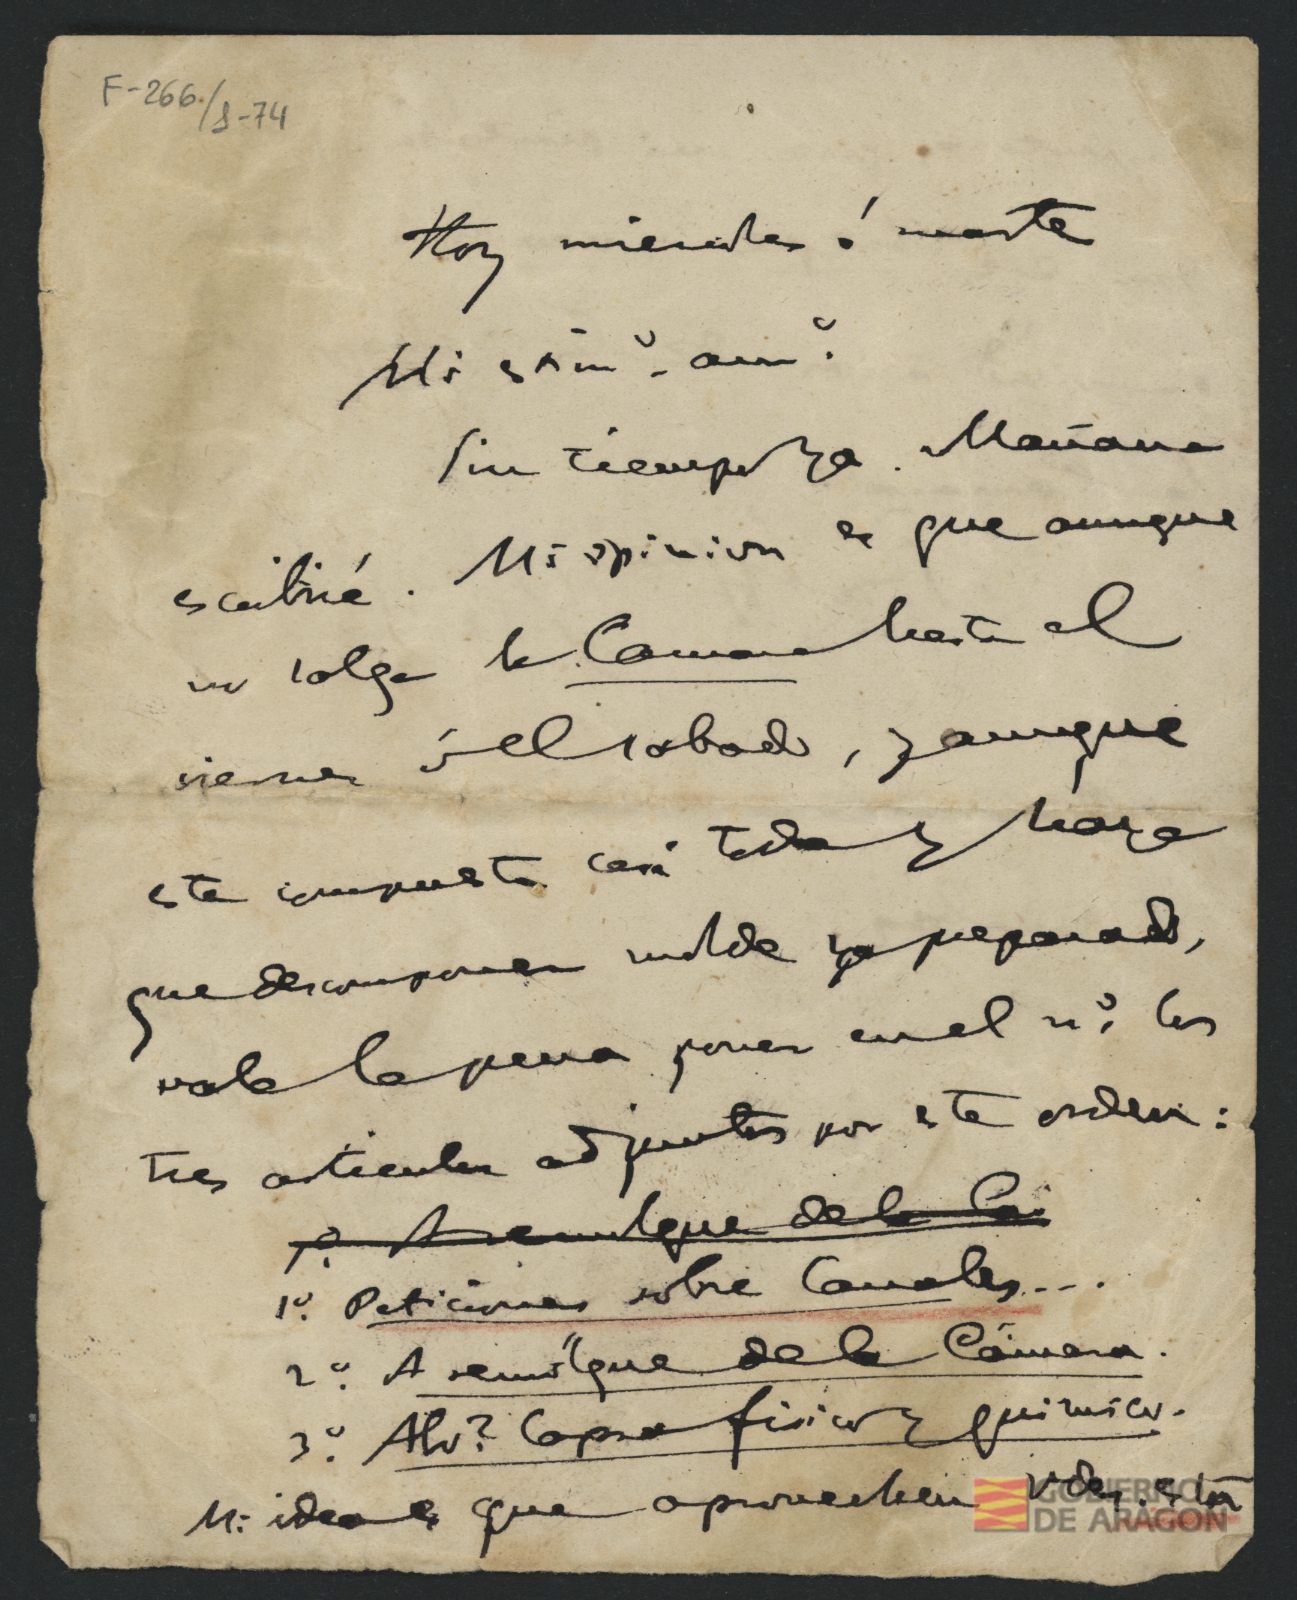 F-266./S-74
Hoy miercoles ó marte
Mi estimº. amº.
Sin tiempo ya. Mañana
escribiré. Mi opinion es que aunque
no salga la Camara hasta el
viernes ó el sabado, y aunque
este compuesta casi toda y haya
que descomponer molde ya preparado,
vale la pena poner en el nº. los
tres articulos adjuntos por este orden:
1º. A remolque de la Ca
1º. Peticiones sobre Canales....
2º. A remolque de la Cámara.
3º. Alvº. Capra fisico y quimico.
Mi idea es que aprovechen Vdes. esta
GOBIERNO
DE ARAGON